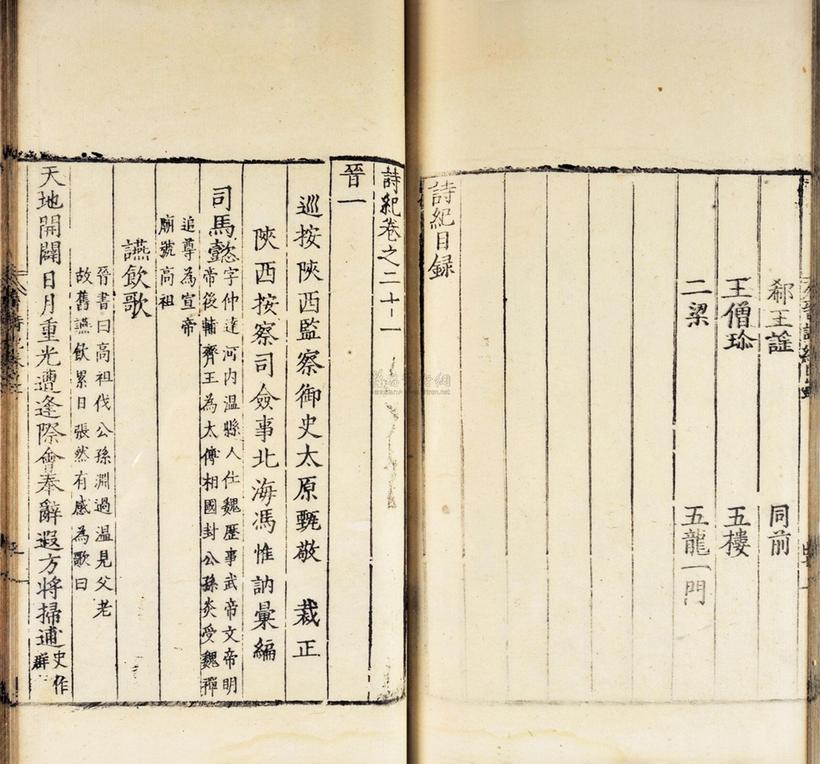 郗王謠
同前
王僧珍
五樓
二梁
五龍一門
詩紀目録
詩紀卷之二十一
晉一
巡按陝西監察御史太原甄敬　裁正
陝西按察司僉事北海馮惟訥彙編
司馬懿
字仲達河内温縣人仕魏歷事武帝文帝明
帝後輔齊王為太傅相國封公孫炎受魏禪
追尊為宣帝
廟號高祖
讌飲歌
晉書曰高祖伐公孫淵過温見父老
故舊讌飲累日張然有感為歌曰
天地開闢日月重光遭逢際會奉辭遐方將掃逋
史作
群